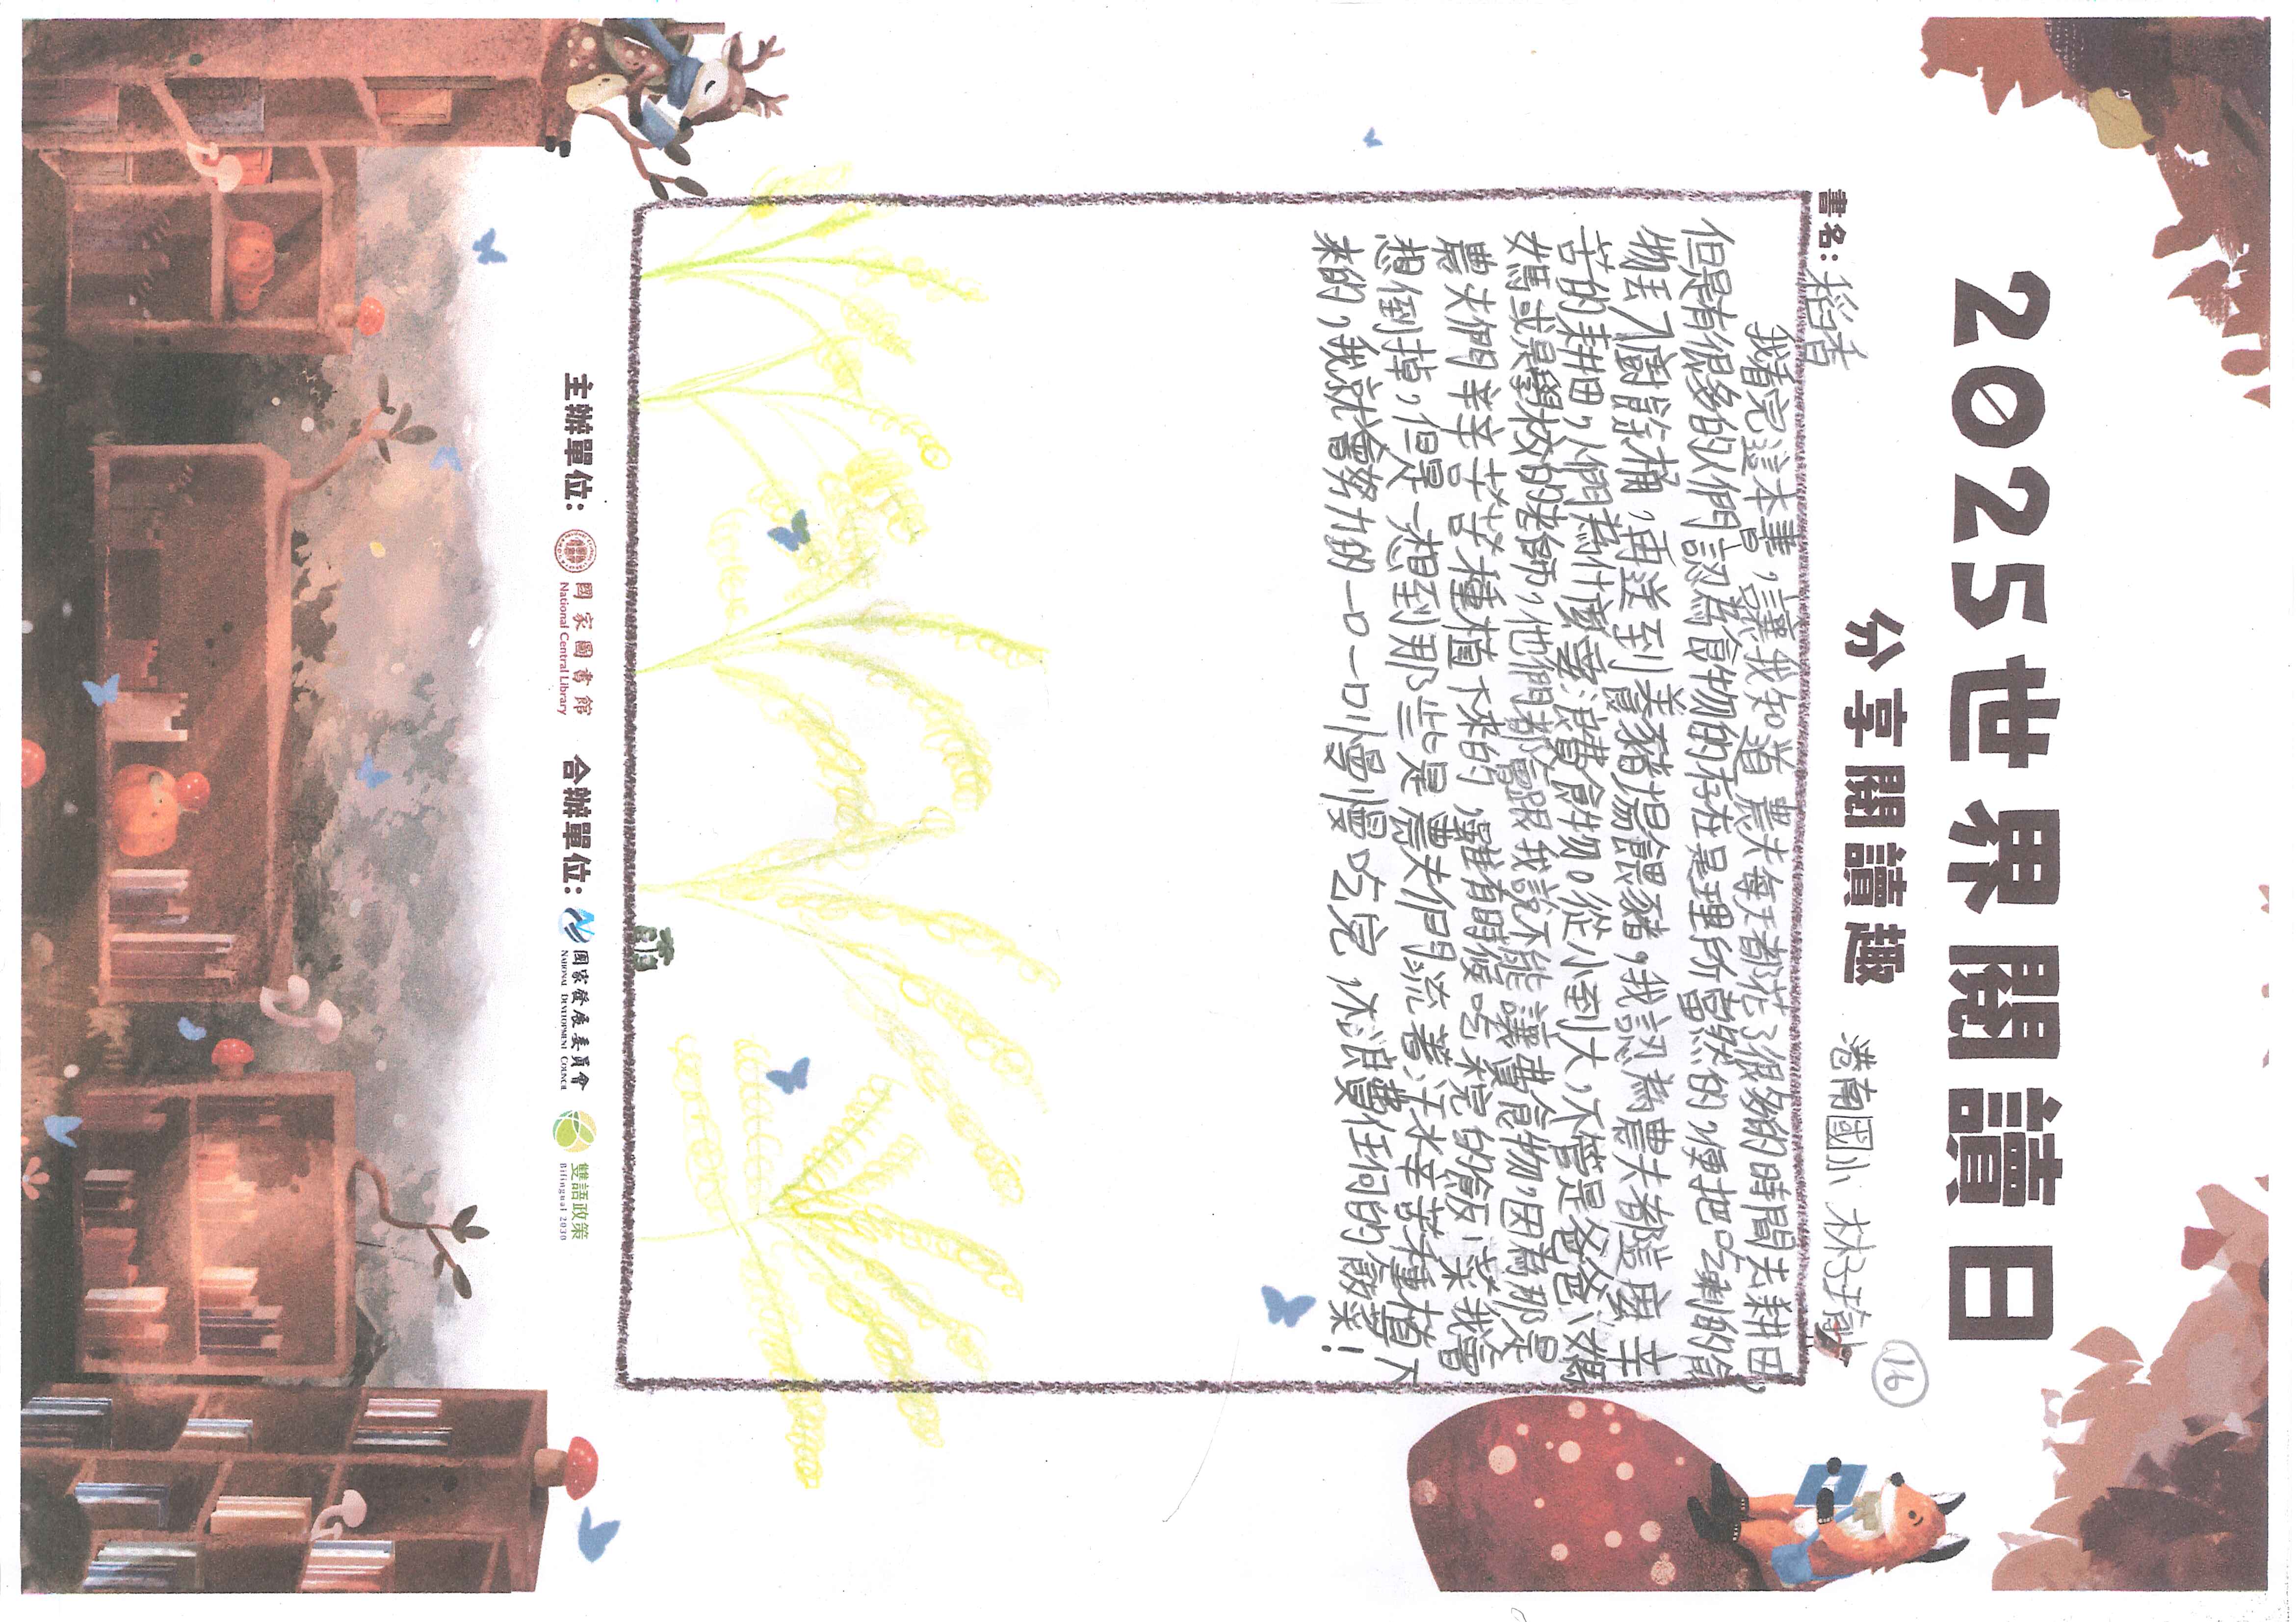 2025世界閱讀日
分享閱讀趣
港南國小 林
16
書名：稻香
我看完這本書，讓我知道 農夫每天都花了很多的時間去耕田，
但是有很多的人們認為食物的存在是理所當然的，便把吃剩的食
物丟入廚餘桶，再送到養豬場餵豬，我認為農夫都這麼辛
苦的耕田，人們為什麼要浪費食物。從小到大，不管是爸爸、媽
媽或是學校的老師，他們都會跟我說不能讓費食物，因為那是
農夫們辛辛苦苦種植下來的，雖有時候吃不完的飯、菜我會
想倒掉，但是一想到那些是農夫們流著汗水辛苦種植下
來的，我就會努力的一口一口慢慢吃完，不浪費任何的飯菜！
主辦單位：
國家圖書館
National Central Library
合辦單位：
國家發展委員會
NATIONAL DEVELOPMENT COUNCIL
雙語政策
Bilingual 2030